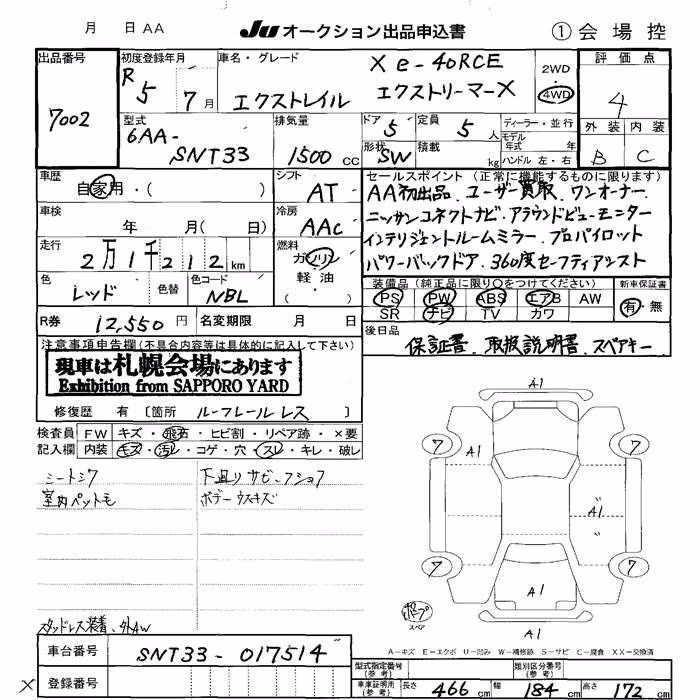 月 日 AA JU オークション出品申込書 ① 会場控
出品番号 初度登録年月 車名・グレード 評価点
7002 R5 7月 エクストレイル X e-4ORCE エクストリーマーX 2WD 4WD 4
型式 排気量 ドア 定員 ディーラー・並行 外装 内装
6AA-SNT33 1500cc 5 5人 モデル年式 年 B C
形状 SW 積載 kg ハンドル 左・右
車歴 シフト セールスポイント(正常に機能するものに限ります)
自家用・( ) AT AA初出品.ユーザー買取.ワンオーナー
車検 冷房 ニッサンコネクトナビ.アラウンドビューモニター
年 月( 日) AAC インテリジェントルームミラー.プロパイロット
走行 燃料 パワーバックドア.360度セーフティアシスト
2万1千212km ガソリン 軽油 ( )
色 色替 色コード 装備品(純正品に限り○をつけてください) 新車保証書
レッド NBL PS PW ABS エアB AW 有・無
SR ナビ TV カワ
R券 12,550円 名変期限 月 日 後日品
注意事項申告欄(不具合内容等は具体的に記入して下さい) 保証書.取扱説明書.スペアキー
現車は札幌会場にあります
Exhibition from SAPPORO YARD
修復歴 有 [箇所 ルーフレールレス ]
検査員記入欄 FW キズ・飛石・ヒビ割・リペア跡・×要
内装 キズ・汚レ・コゲ・穴・スレ・キレ・破レ
シートシワ 下廻りサビ.フショク
室内ペット毛 ボデーウスキズ
A1
7 A1 7
7 A1 7
A1
スペア
スタッドレス装着.外AW
A=キズ E=エクボ U=凹み W=補修跡 S=サビ C=腐食 XX=交換済
車台番号 SNT33-017514
型式指定番号(参考) 類別区分番号(参考)
× 登録番号 車庫証明用(参考) 長さ 466cm 幅 184cm 高さ 172cm